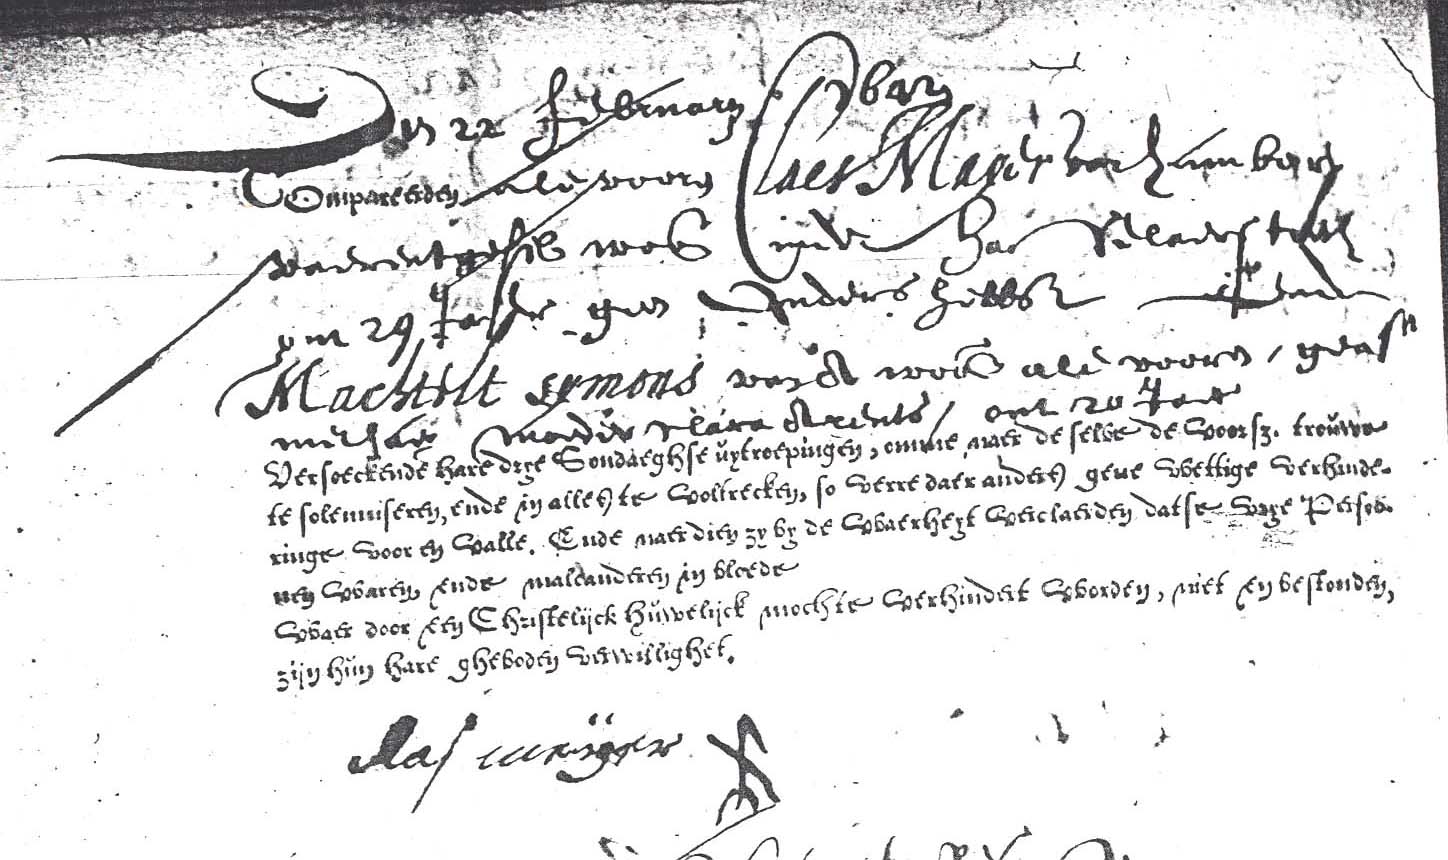 Den 22 februarij
Compareerden als vooren Claes Mayer van hamborch
varentgesel wonende inde
out 29 Jaer geen ouders hebbende ende
Machtelt symons van A wonende als vooren, geass
met haer moeder Clara Arents, out 20 Jaer
Versoeckende hare drye Sondaeghse uytroepingen, omme naer de selve de voorsz. trouwe
te solemniseren, ende in alles te voltrecken, so verre daer anders geene wettige verhinde-
ringe voor en valle. Ende naer dien zy by de waerheyt verclaerden datse vrye Perso-
nen waren, ende malcanderen in bloede
waer door een Christelijck huwelijck mochte verhindert worden, niet en bestonden,
zijn hun hare gheboden verwillighet.
clas meÿger